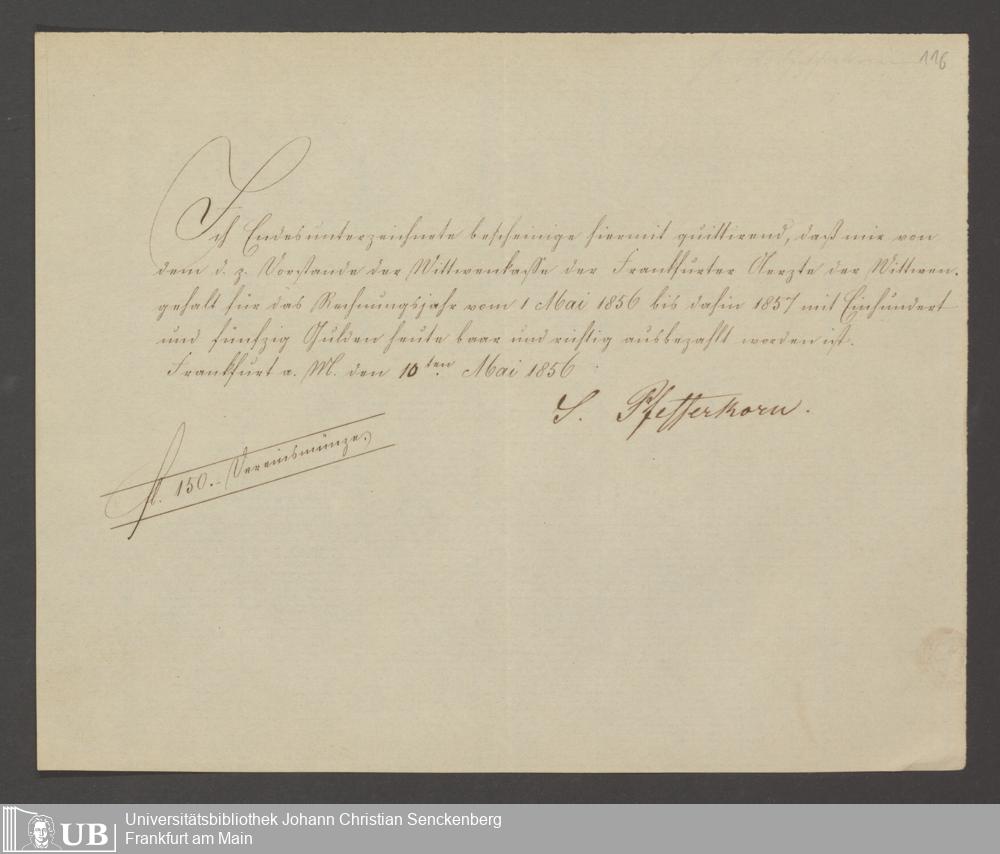 116
Ich Endesunterzeichnete bescheinige hiermit quittirend, daß mir von
dem d. z. Vorstande der Wittwenkasse der Frankfurter Aerzte der Wittwen-
gehalt für das Rechnungsjahr vom 1 Mai 1856 bis dahin 1857 mit Einhundert
und fünfzig Gulden heute baar und richtig ausbezahlt worden ist.
Frankfurt a. M. den 10ten Mai 1856
S. Pfefferkorn.
fl. 150.- Vereinsmünze.
UB
Universitätsbibliothek Johann Christian Senckenberg
Frankfurt am Main